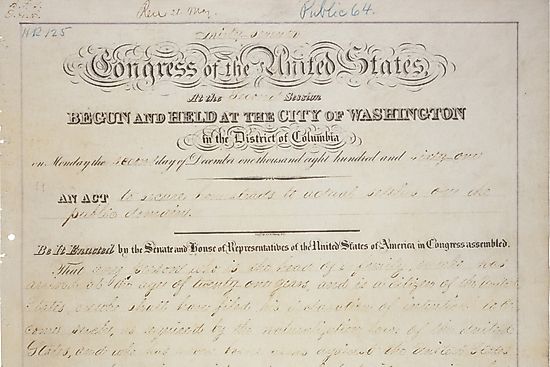 Public 64.
HR 125
Thirty-Seventh
Congress of the United States,
At the Second Session
BEGUN AND HELD AT THE CITY OF WASHINGTON
in the District of Columbia
on Monday the second day of December one thousand eight hundred and sixty-one
AN ACT to secure homesteads to actual settlers on the
public domain.
Be It Enacted by the Senate and House of Representatives of the United States of America in Congress assembled.
That any person who is the head of a family, or who has
arrived at the age of twenty one years, and is a citizen of the United
States, or who shall have filed his declaration of intention to be-
come such, as required by the naturalization laws of the United
States, and who has never borne arms against the United States